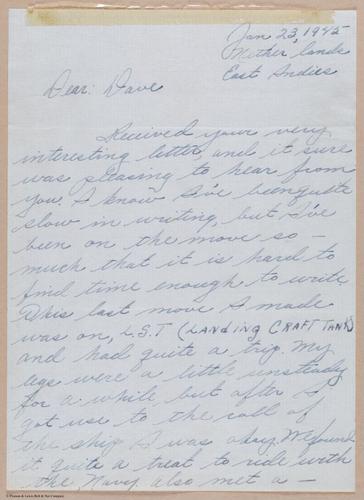 Jan 23, 1945
Netherlands
East Indies
Dear: Dave
Received your very
interesting letter, and it sure
was pleasing to hear from
you. I know I've been quite
slow in writing, but I've
been on the move so -
much that it is hard to
find time enough to write
This last move I made
was on, L.S.T (LANDING CRAFT TANK)
and had quite a trip. My
legs were a little unsteady
for a while but after I
got use to the roll of
the ship I was okay. We found
it quite a treat to ride with
the Navy, also met a -